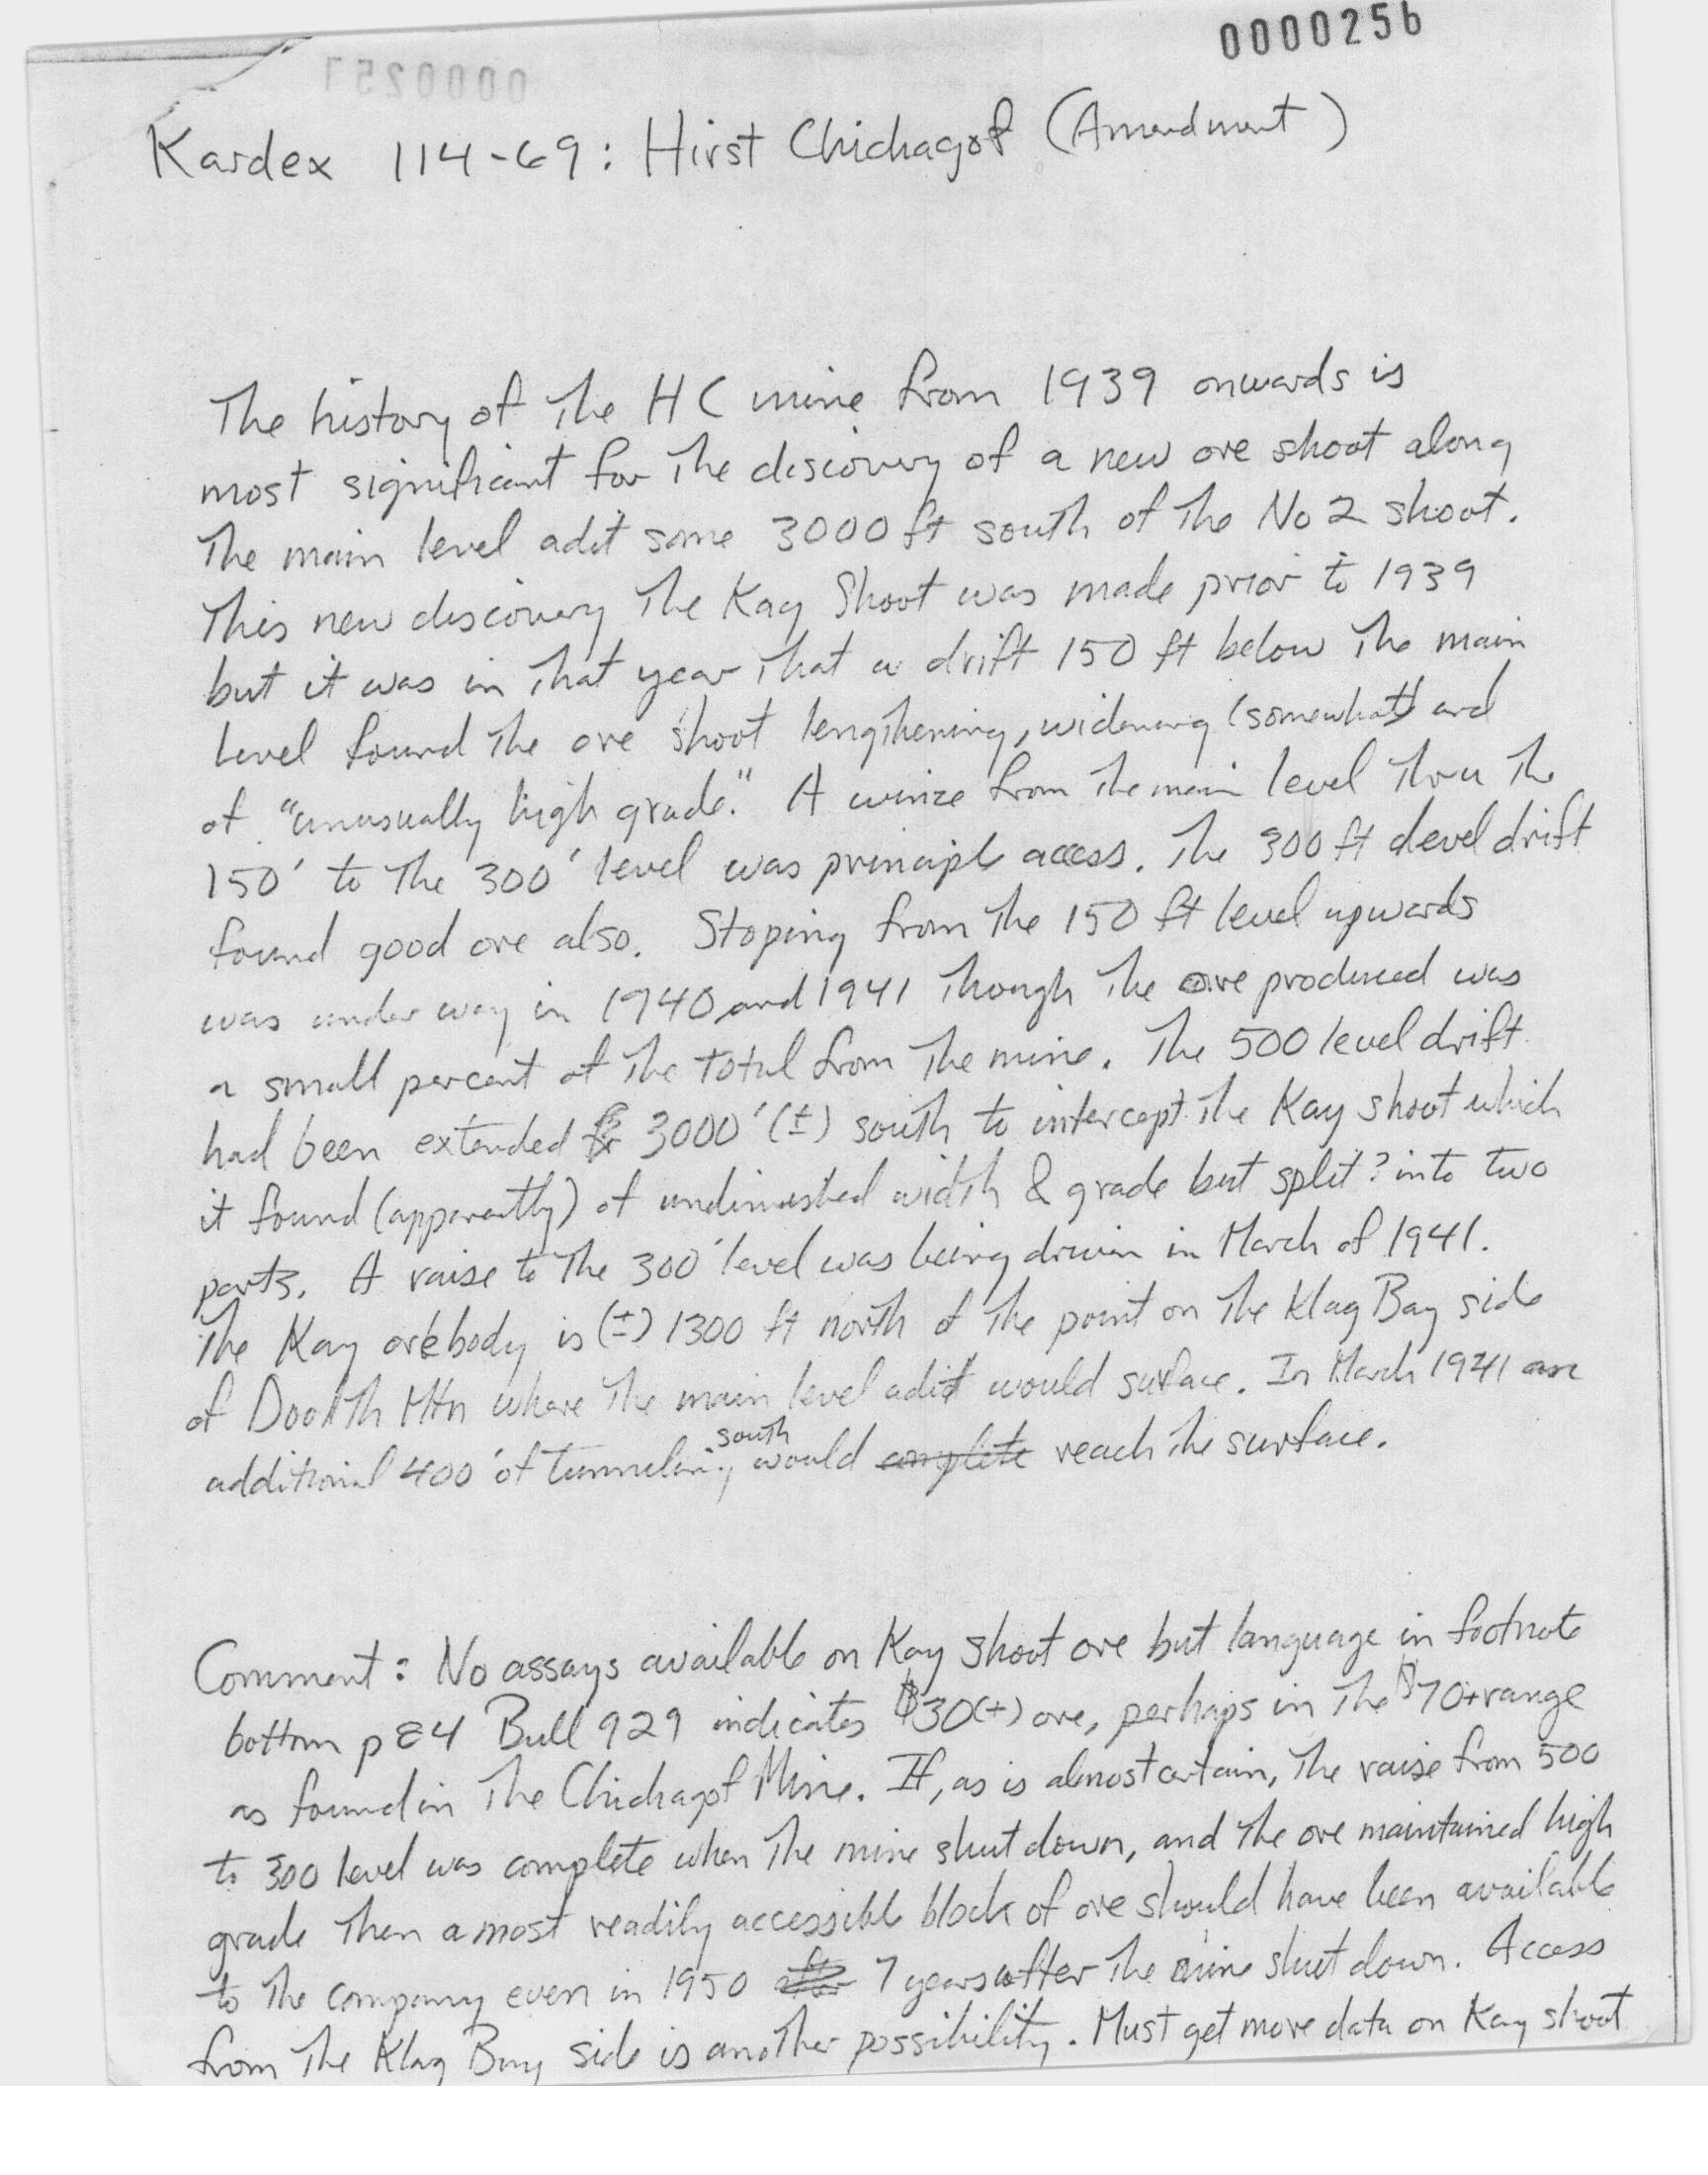 0000256
Kardex 114-69: Hirst Chichagof (Amendment)
The history of the HC mine from 1939 onwards is
most significant for the discovery of a new ore shoot along
the main level adit some 3000 ft south of the No 2 shoot.
This new discovery the Kay Shoot was made prior to 1939
but it was in that year that a drift 150 ft below the main
level found the ore shoot lengthening, widening (somewhat) and
of "unusually high grade." A winze from the main level thru the
150' to the 300' level was principle access. The 300 ft level drift
found good ore also. Stoping from the 150 ft level upwards
was under way in 1940 and 1941 though the ore produced was
a small percent of the total from the mine. The 500 level drift
had been extended 3000' (±) south to intercept the Kay shoot which
it found (apparently) of undiminished width & grade but split? into two
parts. A raise to the 300' level was being driven in March of 1941.
The Kay orebody is (±) 1300 ft north of the point on the Klag Bay side
of Doolth Mtn where the main level adit would surface. In March 1941 an
additional 400' of tunneling south would complete reach the surface.
Comment: No assays available on Kay shoot ore but language in footnote
bottom p 84 Bull 929 indicates $30(+) ore, perhaps in the $70+ range
as found in the Chichagof Mine. If, as is almost certain, the raise from 500
to 300 level was complete when the mine shut down, and the ore maintained high
grade then a most readily accessible block of ore should have been available
to the company even in 1950 after 7 years after the mine shut down. Access
from the Klag Bay side is another possibility. Must get more data on Kay shoot